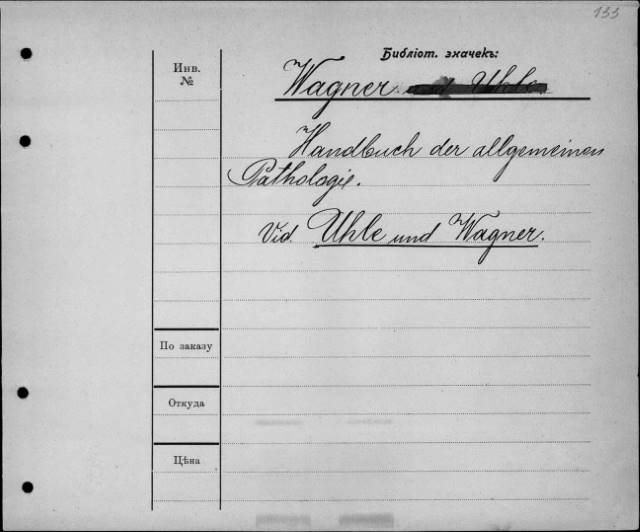 133
Библіот. значекъ:
Инв.
№
Wagner
Handbuch der allgemeinen
Pathologie.
Vid. Uhle und Wagner.
По заказу
Откуда
Цѣна